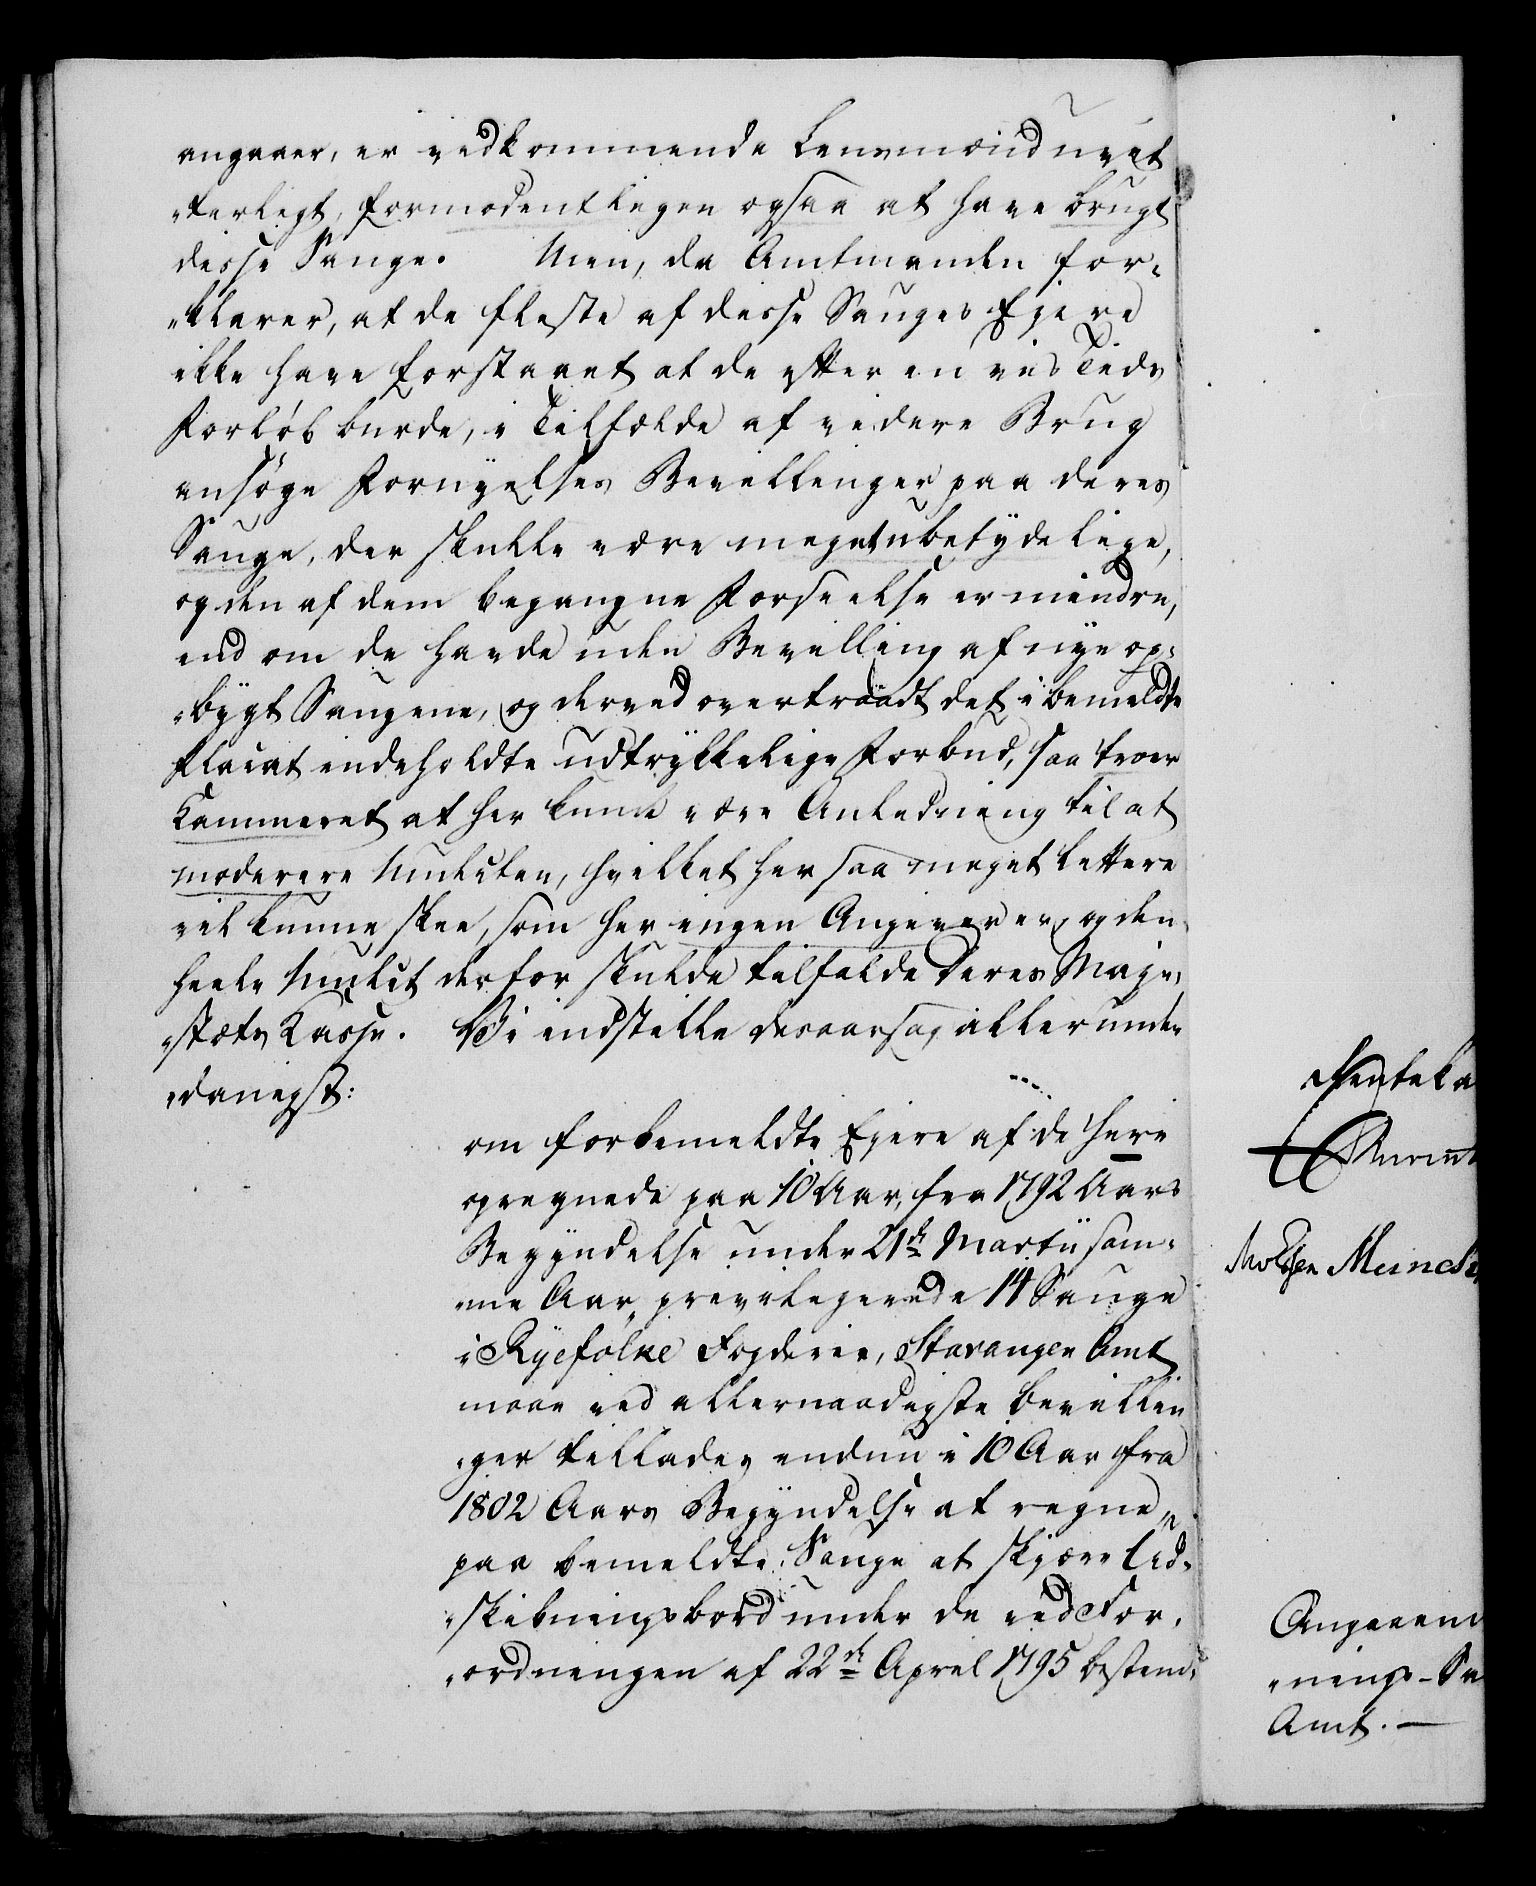 angaaer, er vedkommende Lensmænd uvet
„terligt, formodentligen ogsaa at have brugt
disse Sauge. Men, da Amtmanden for„
„klarer, at de fleste af disse Sauges Ejere
ikke have forstaaet at de efter en vis Tids
Forløb burde, i Tilfælde af videre Brug
ansøge Fornyelses Bevillinger paa deres
Sauge, der skulle være meget ubetydelige,
og den af dem begangne Forseelse er mindre,
end om de havde uden Bevilling af nye op„
„bygt Saugene, og derved overtraadt det i bemeldte
Placat indeholdte udtrykkelige Forbud, saa troer
Kammeret at her kunde være Anledning til at
moderere Mulcten, hvilket her saa meget lettere
vil kunne skee, som her ingen Angiver er, og den
heele Mulct derfor skulde tilfalde Deres Maje„
„stæts Kasse. Vi indstille desaarsag allerunder
„danigst:
om forbemeldte Ejere af de her
opregnede paa 10 Aar, fra 1792 Aars
Begyndelse under 21de Martii sam„
„me Aar, privilegerede 14 Sauge
i Ryefølke Fogderie, Stavanger Amt
maae ved allernaadigste bevillin
„ger tillades endnu i 10 Aar fra
1802 Aars Begyndelse at regne,
paa bemeldte Sauge at skjære Ud„
„skibningsbord under de ved For„
„ordningen af 22de April 1795 bestem„
Renteka
Angaaen
„nings-Sa
Amt. —